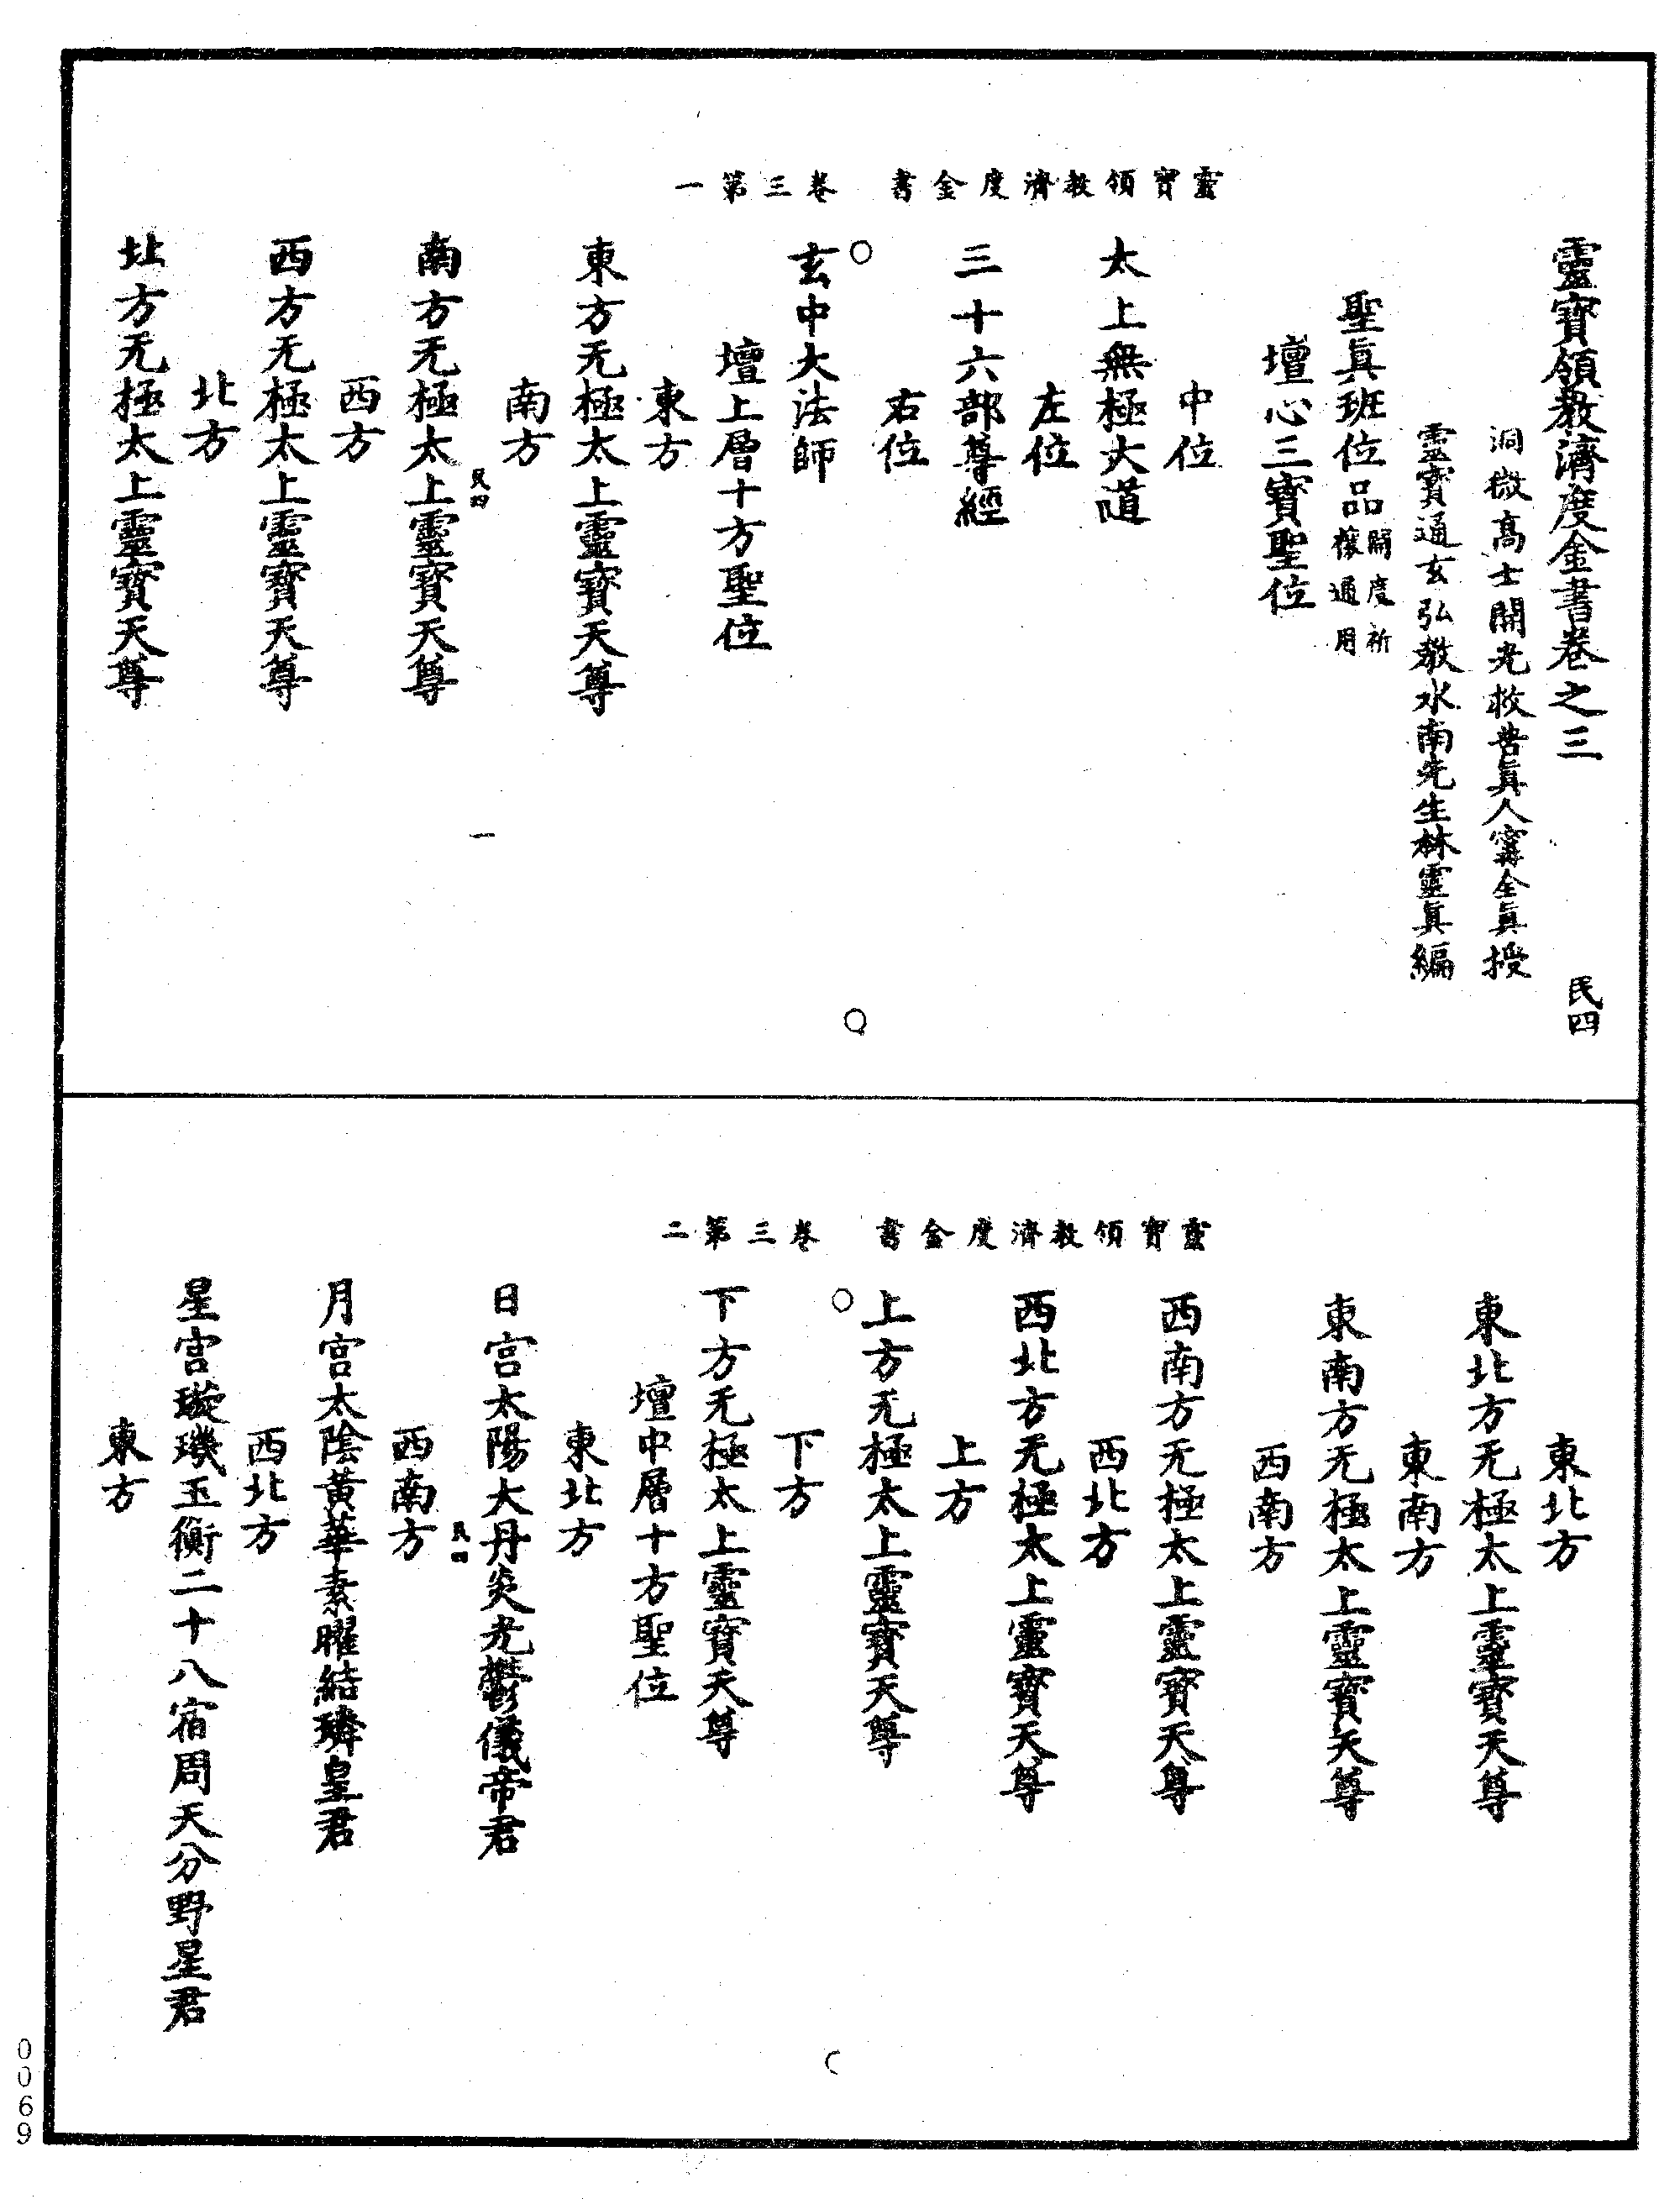 靈寶領教濟度金書　卷三第一
靈寶領教濟度金書卷之三　民四
洞微高士開光救苦眞人寗全眞授
靈寶通玄弘教水南先生林靈眞編
聖眞班位品開度祈禳通用
壇心三寶聖位
中位
太上無極大道
左位
三十六部尊經
右位
玄中大法師
壇上層十方聖位
東方
東方无極太上靈寶天尊
南方
民四　一
南方无極太上靈寶天尊
西方
西方无極太上靈寶天尊
北方
北方无極太上靈寶天尊
靈寶領教濟度金書　卷三第二
東北方
東北方无極太上靈寶天尊
東南方
東南方无極太上靈寶天尊
西南方
西南方无極太上靈寶天尊
西北方
西北方无極太上靈寶天尊
上方
上方无極太上靈寶天尊
下方
下方无極太上靈寶天尊
壇中層十方聖位
東北方
日宮太陽大丹炎光鬱儀帝君
民四
西南方
月宮太陰黃華素曜結璘皇君
西北方
星宮璇璣玉衡二十八宿周天分野星君
東方
0069